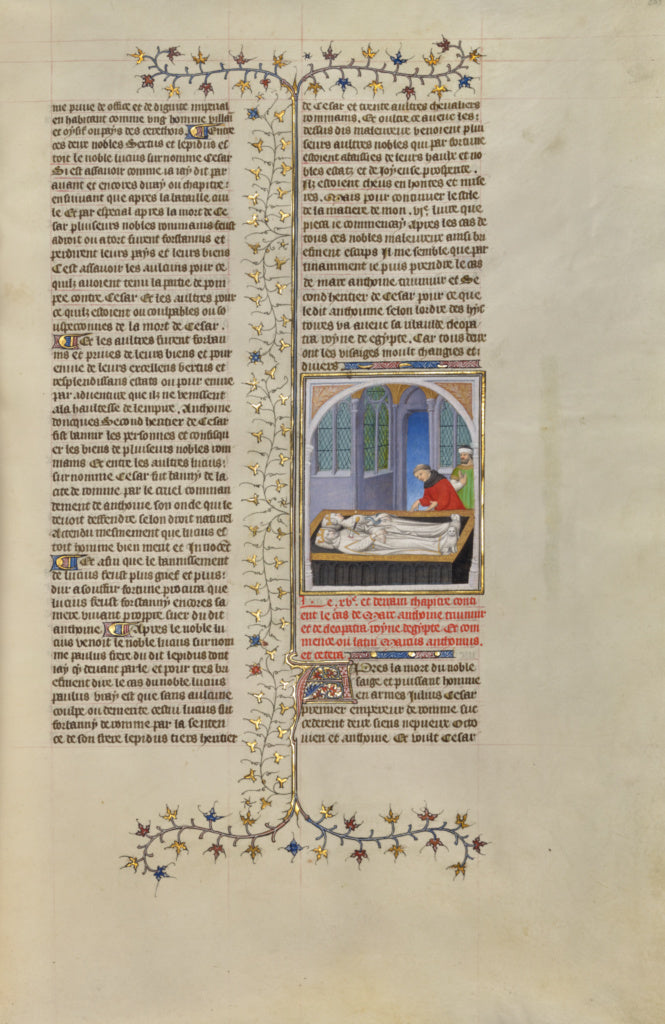 me priue de office et de dignite imperial
en habitant comme ung homme villain
et oysif ou pays des cerethois. Entre
ces deux nobles Sertus et lepidus es
toit le noble lucius surnomme Cesar
Si est assauoir comme ia iay dit par
auant et encores diray ou chapitre
ensuiuant que apres la bataille ciui
le Et par especial apres la mort de Ce
sar pluseurs nobles rommains feust
a droit ou a tort furent forbannis et
perdirent leurs pays et leurs biens
C'est assauoir les aulcuns pour ce
quilz auoient tenu la partie de pom
pee contre Cesar Et les aultres pour
ce quilz estoient ou coulpables ou so
uspeconnes de la mort de Cesar.
Et les aultres furent forban
nis et priues de leurs biens et pour
enuie de leurs excellens vertus et
resplendissans estats ou pour enuie
par aduenture que ilz ne venissent
a la haultesse de lempire. Anthoine
doncques Second hentier de Cesar
fist bannir les personnes et confisqu
er les biens de pluseurs nobles rom
mains Et entre les aultres lucius
surnomme Cesar fut banny de la
cite de romme par le cruel comman
dement de anthoine son oncle qui le
deuoit deffendre selon droit naturel
Actendu mesmement que lucius es
toit homme bien meur et Innocent
Et afin que le bannissement
de lucius feust plus grief et plus
dur a souffrir fortune procura que
lucius feust forbanny encores sa
mere viuant propre suer du dit
anthoine. Apres le noble lu
cius venoit le noble lucius surnom
me paulus frere du dit lepidus dont
iay cy deuant parle et pour tres bri
efment dire le cas du noble lucius
paulus vray est que sans aulcune
coulpe ou demerite cestui lucius fut
forbanny de romme par la senten
ce de son frere lepidus tiers hentier
de Cesar et trente aultres cheualiers
rommains. Et oultre ce auec les
dessus dis maleureux venoient plu
seurs aultres nobles qui par fortune
estoient abaissies de leurs haulx et no
bles estatz et de Ioyeuse prosperite.
Ilz estoient cheus en hontes et mise
res. Mais pour continuer le stile
de la matiere de mon .vie. liure que
pieca ie commencay Apres les cas de
tous ces nobles maleureux ainsi bri
efment escrips Il me semble que par
tinamment ie puis prendre le cas
de marc anthoine triumuir et Se
cond hentier de Cesar pour ce que
ledit anthoine selon lordre des hys
toires va auec sa ribaude cleopa
tra royne de egypte. Car tous deux
ont les visaiges moult changies et
diuers
Le .xve. et derrain chapitre conti
ent le cas de Marc anthoine triumuir
et de cleopatra royne degypte Et com
mence ou latin Marcus anthonius.
et cetera
Apres la mort du noble
saige et puissant homme
en armes Julius Cesar
premier empereur de romme suc
cederent deux siens nepueux Octo
uien et anthoine Et voult Cesar